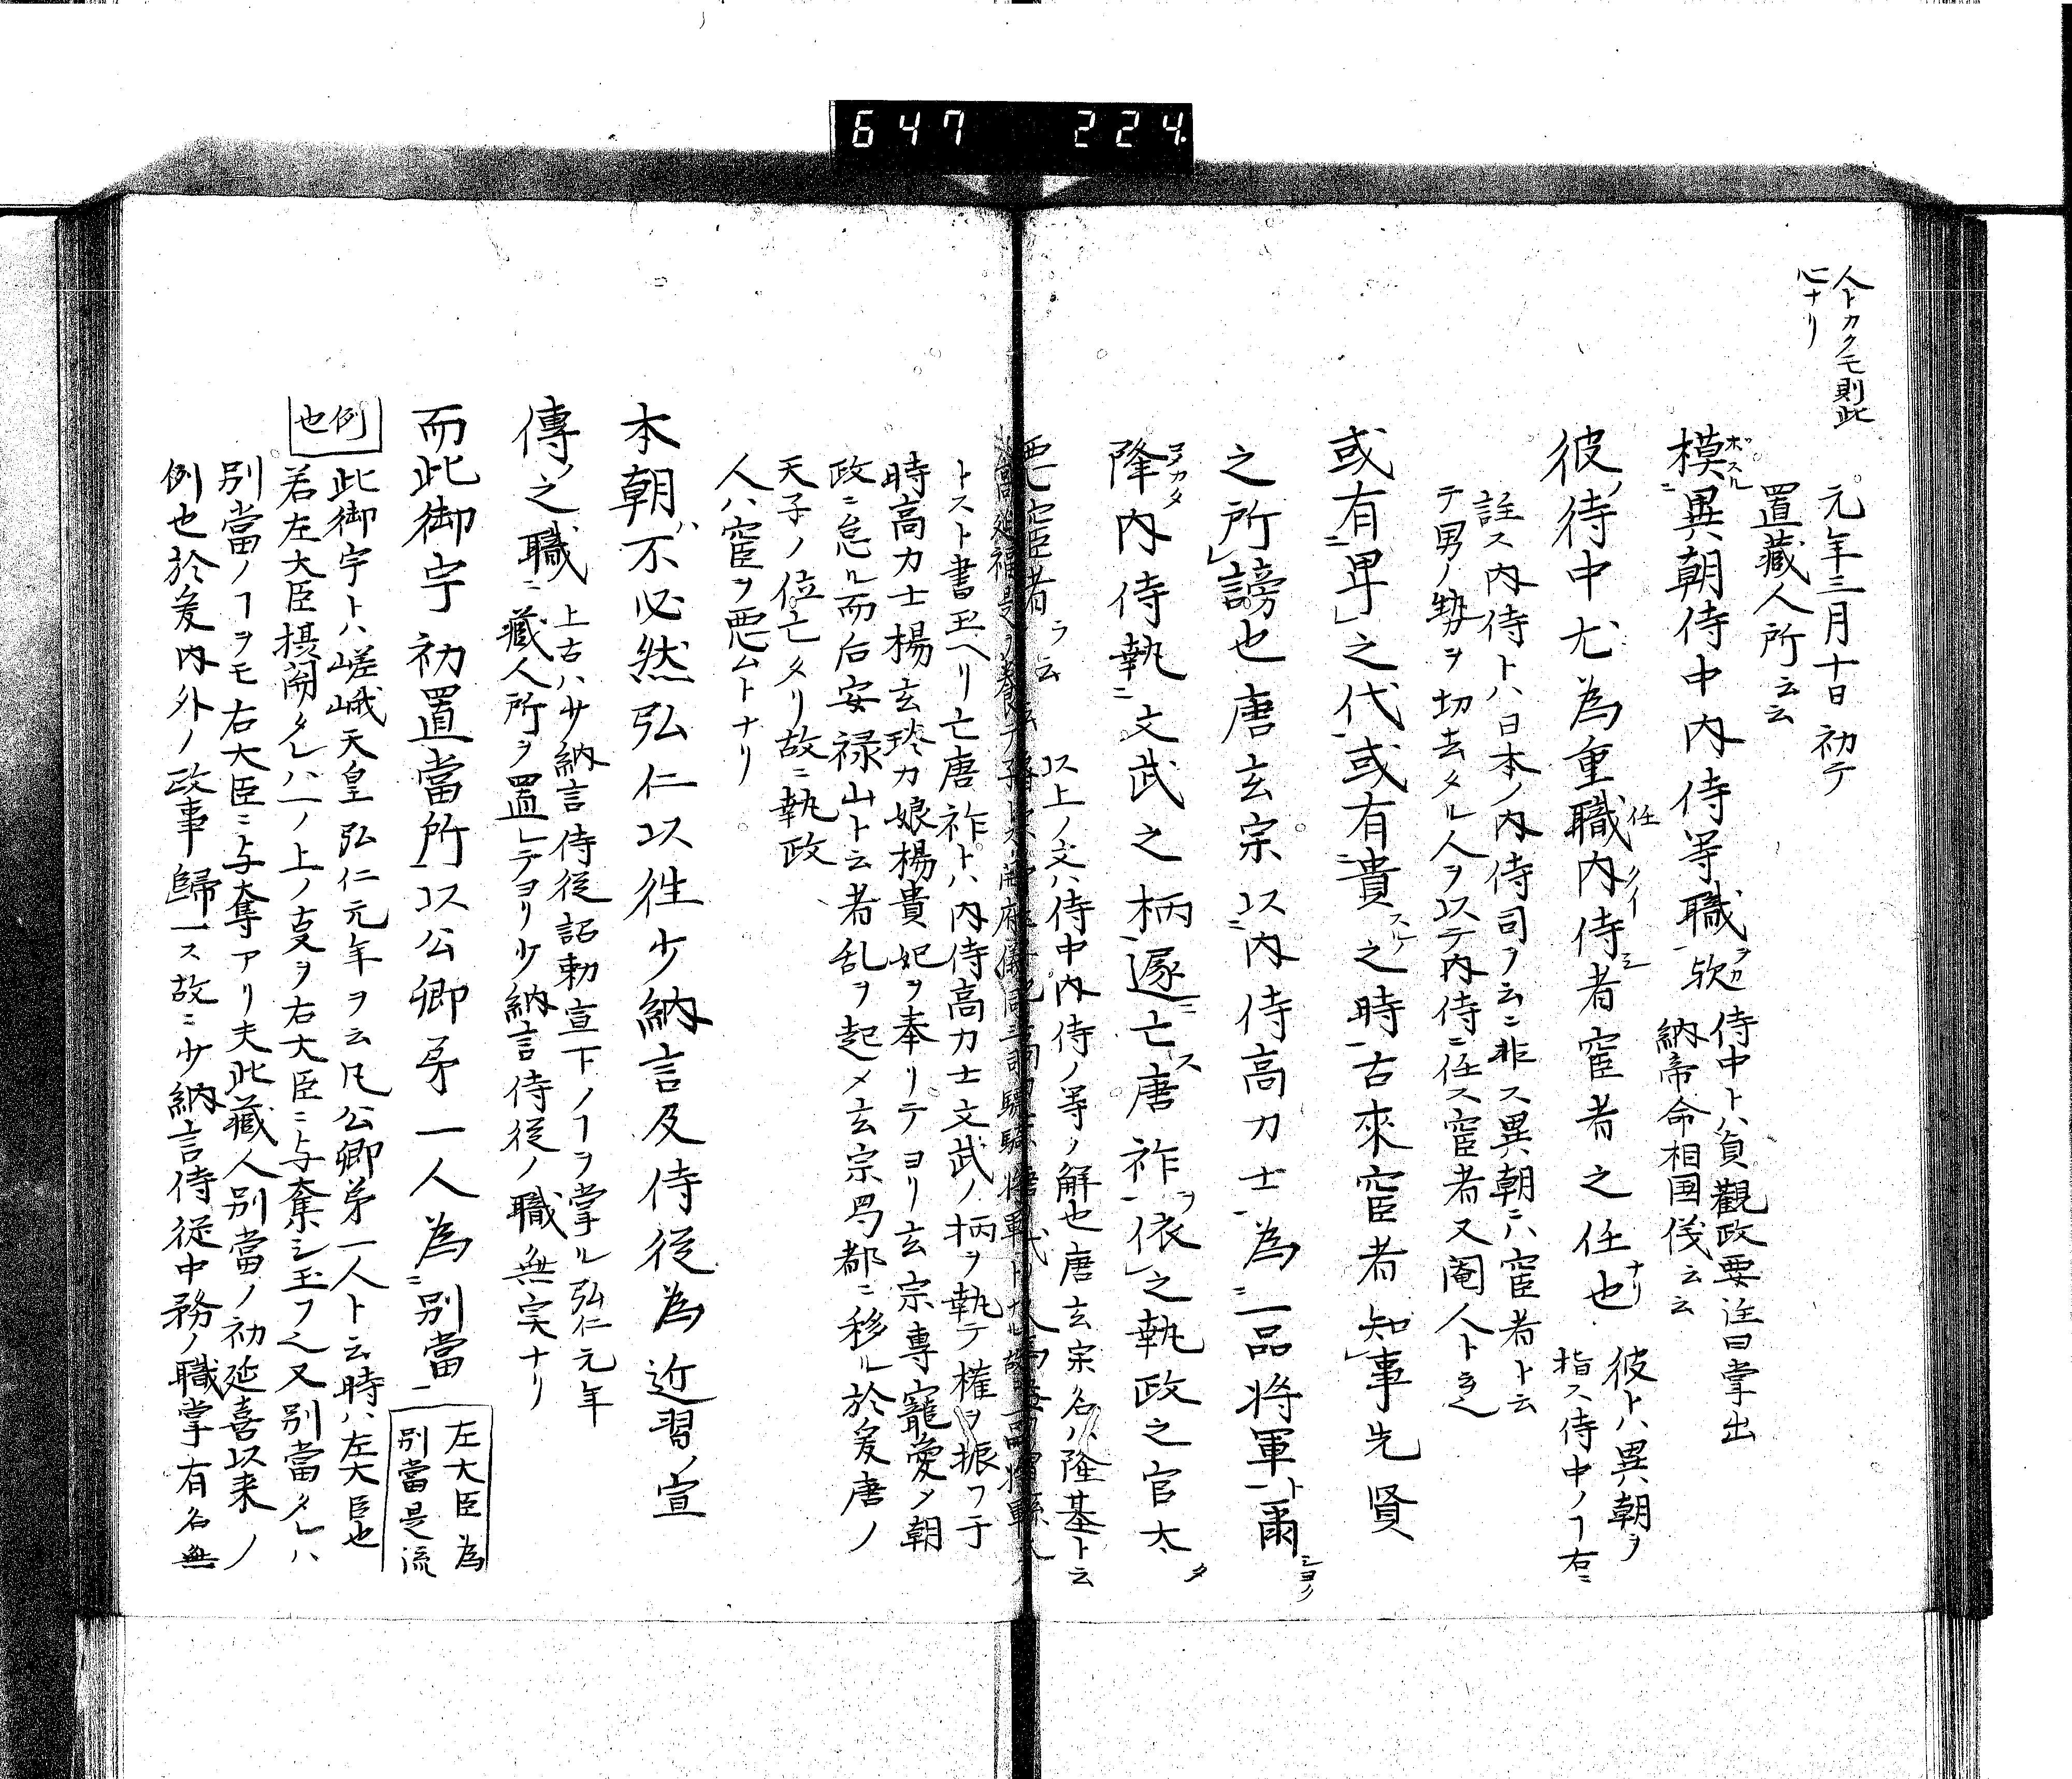 647 224.
人トカクモ則此
心ナリ
元年三月十日初テ
置藏人所云云
模異朝侍中内侍等職欤
侍中トハ負觀政要注曰掌出
納帝命相国儀云云
彼侍中尤為重職内侍者宦者之任也
彼トハ異朝ヲ
指ス侍中ノヿ右ニ
註ス内侍トハ日本ノ内侍司ヲ云ニ非ス異朝ニハ宦者ト云
テ男ノ勢ヲ切去タル人ヲ以テ内侍ニ任ス宦者又閹人ト云之
或有卑之代或有貴之時古來宦者知事先賢
之所謗也唐玄宗以内侍高力士為一品将軍爾
降内侍執文武之柄遂亡唐祚依之執政之官太
悪宦者
以上ノ文ハ侍中内侍ノ等ノ解也唐玄宗名ハ隆基ト云
トスト書玉ヘリ亡唐祚トハ内侍高力士文武ノ柄ヲ執テ權ヲ振フ于
時高力士楊玄琰カ娘楊貴妃ヲ奉リテヨリ玄宗專寵愛メ朝
政ニ怠ル而后安禄山ト云者乱ヲ起メ玄宗蜀都ニ移ル於爰唐ノ
天子ノ位亡タリ故ニ執政
人ハ宦ヲ悪ムトナリ
本朝ハ不必然弘仁以徃少納言及侍従為近習ノ宣
傳ノ之職
上古ハ少納言侍従詔勅宣下ノヿヲ掌ル弘仁元年
藏人所ヲ置レテヨリ少納言侍従ノ職無実ナリ
而此御宇初置當所以公卿第一人為別當
左大臣為
別當是流
例
也
此御宇トハ嵯峨天皇弘仁元年ヲ云凡公卿第一人ト云時ハ左大臣也
若左大臣摂関タレハ一ノ上ノ支ヲ右大臣ニ与奪シ玉フ之又別當タレハ
別當ノヿヲモ右大臣ニ与奪アリ夫此藏人別當ノ初延喜以来ノ
例也於爰内外ノ政事歸一ス故ニ少納言侍従中務ノ職掌有名無